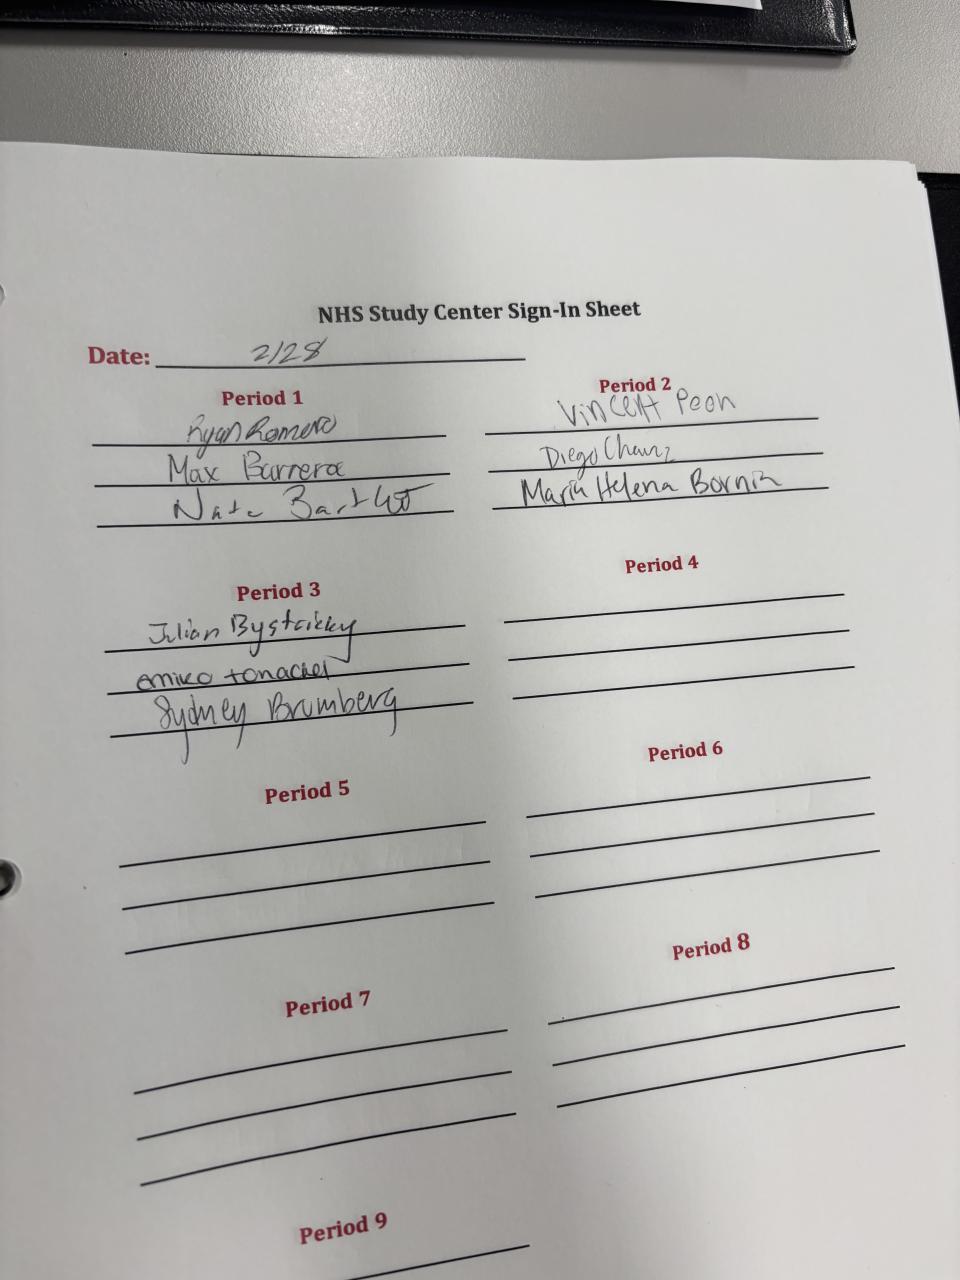 NHS Study Center Sign-In Sheet
Date: 2/28
Period 1
Ryan Romero
Max Barrera
Nate
Period 2
Vincent Peon
Diego
Maria Helena Bornia
Period 3
Julian Bystricky
emiko tonachel
Sydney Brumberg
Period 4
Period 5
Period 6
Period 7
Period 8
Period 9